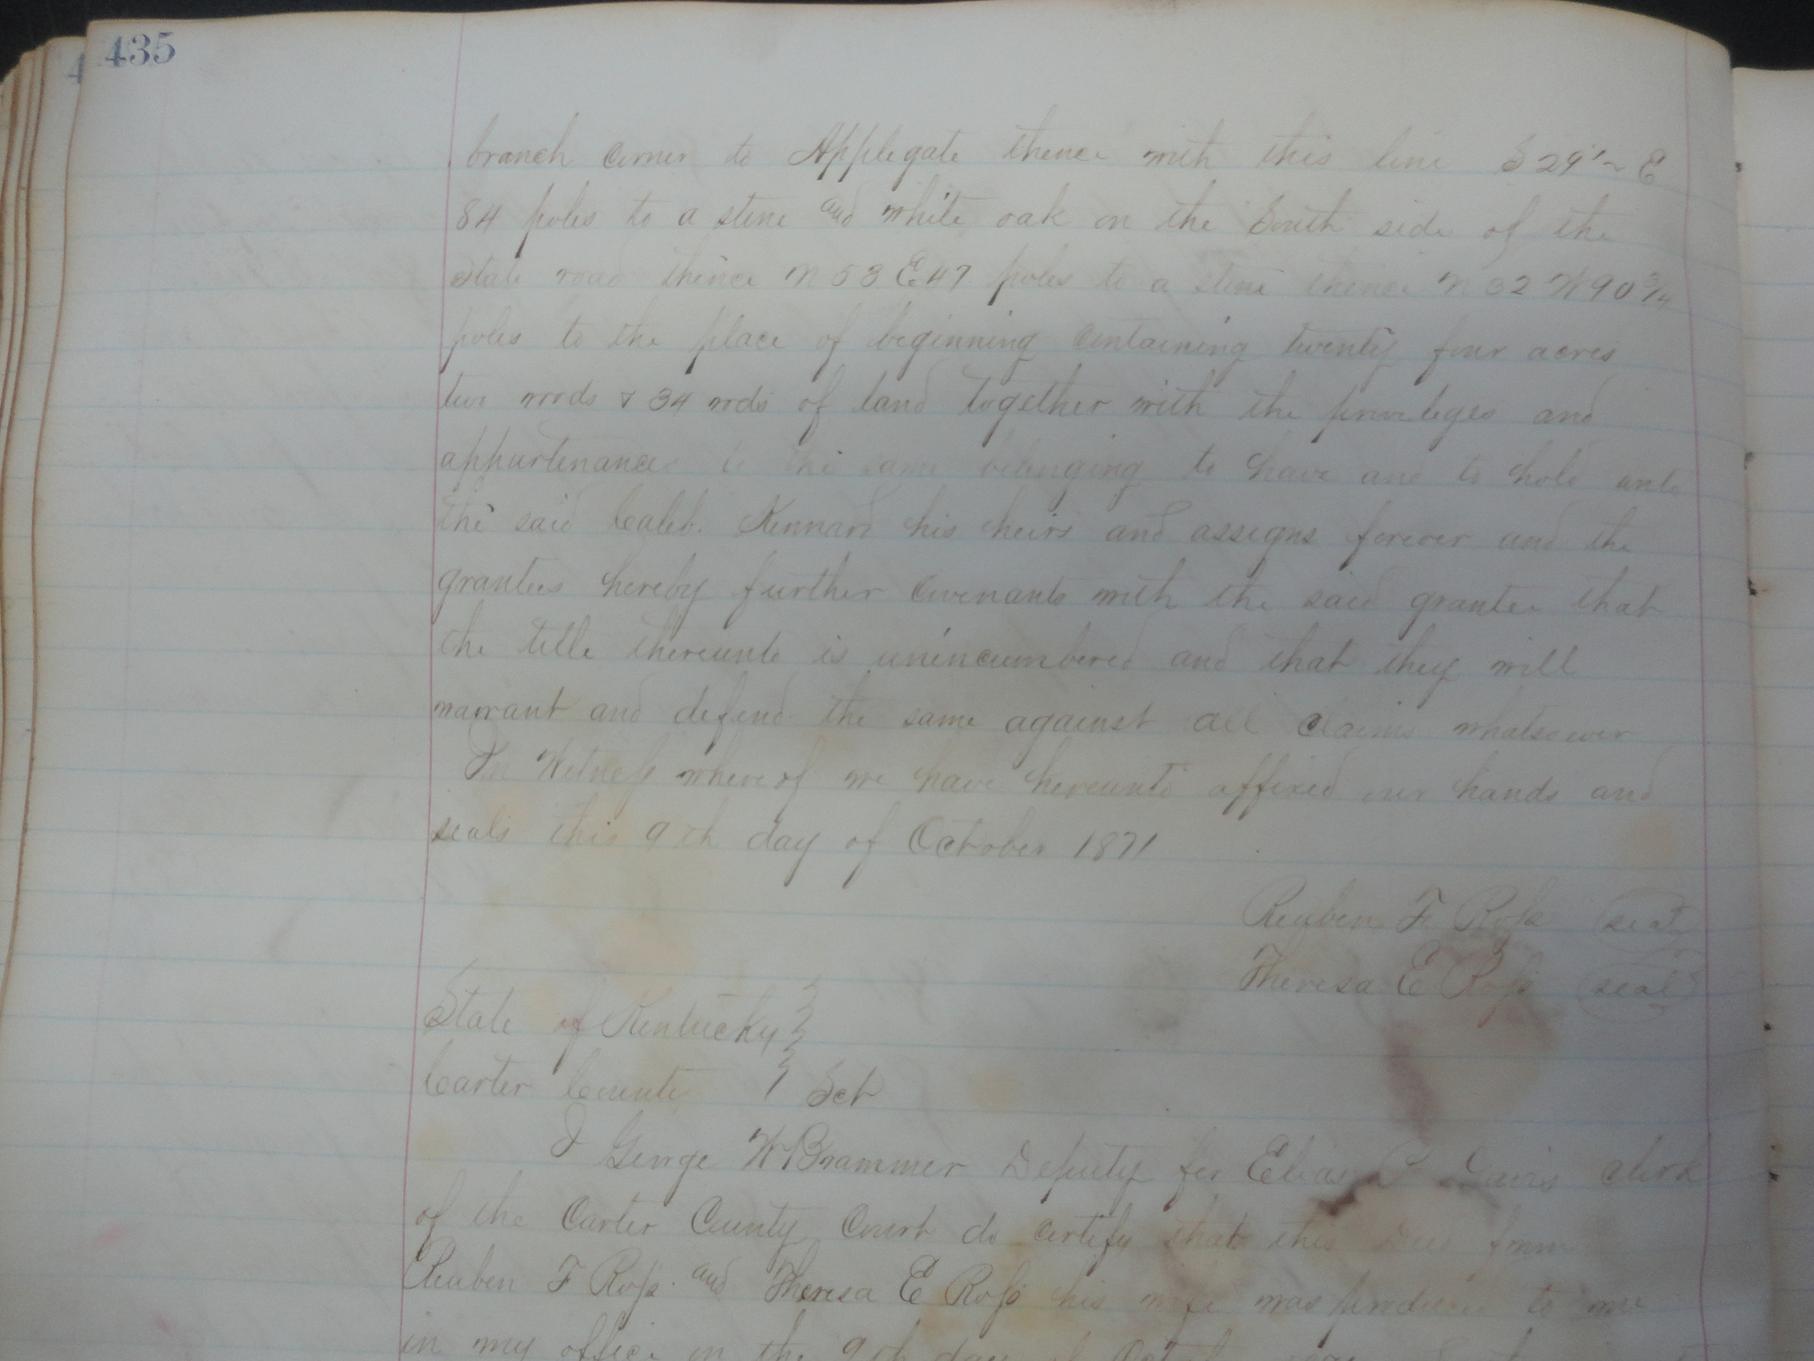 435
branch corner to Applegate thence with this line S 29 E
84 poles to a stone and white oak on the South side of the
State road thence N 53 E 47 poles to a stone thence N 32 W 90 3/4
poles to the place of beginning containing twenty four acres
two roods & 34 rods of land together with the privileges and
appurtenances to the same belonging to have and to hold unto
the said Caleb. Kennard his heirs and assigns forever and the
grantees hereby further covenants with the said grantee that
the title thereunto is unincumbered and that they will
warrant and defend the same against all claims whatsoever
In Witness whereof we have hereunto affixed our hands and
seals this 9th day of October 1871
Reuben F Ross seal
Theresa E Ross seal
State of Kentucky
Carter County Sct
I George W Brammer Deputy for Elias Davis clerk
of the Carter County Court do certify that this Deed from
Reuben F Ross and Theresa E Ross his wife was produced to me
in my office on the 9th day of